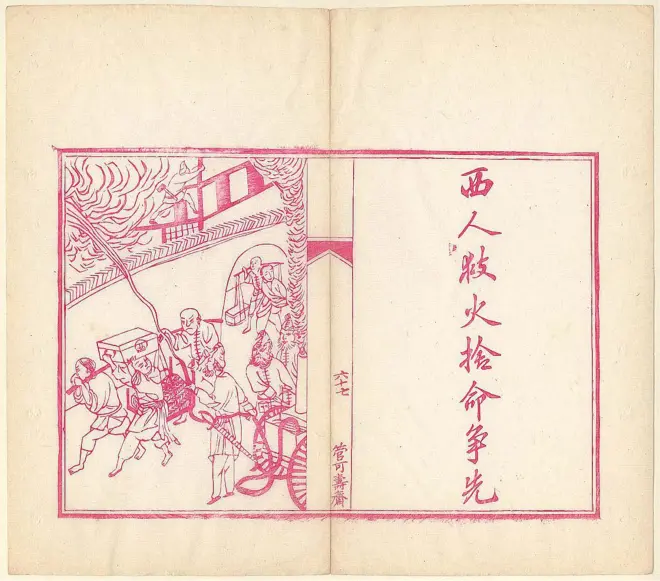 西人救火捨命爭先
六十七
管可壽齋